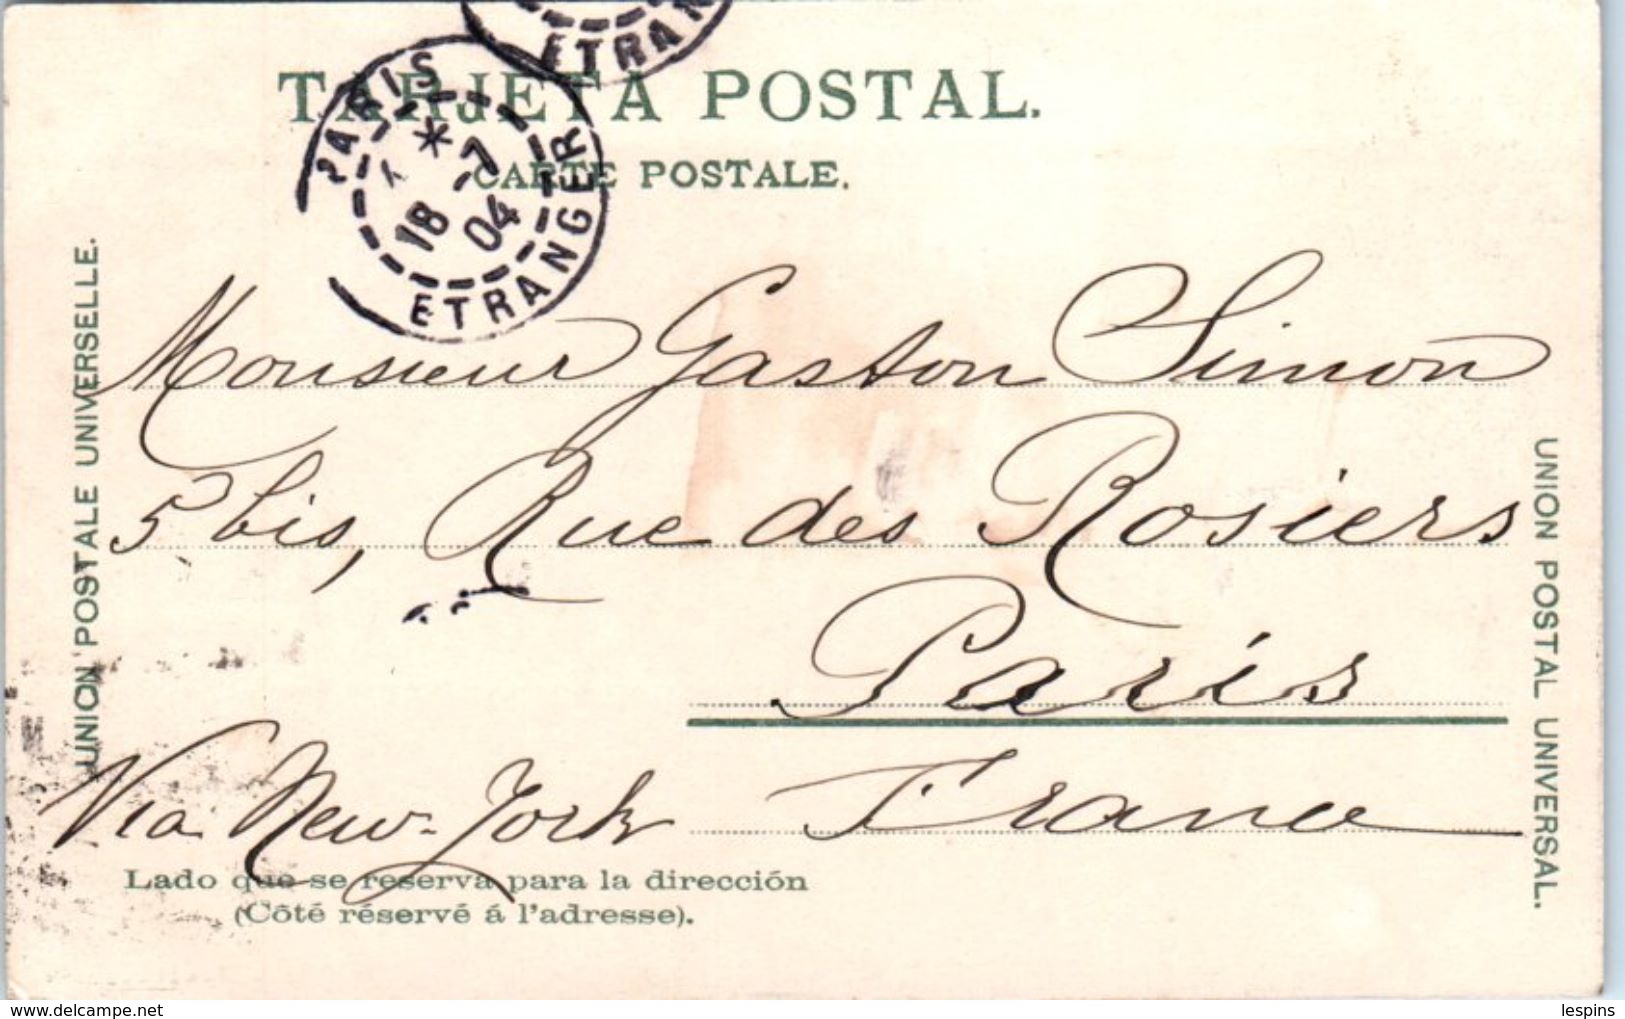 ETRAN
PARIS
* -7
18 04
ETRANGER
TARJETA POSTAL.
CARTE POSTALE.
UNION POSTALE UNIVERSELLE.
Monsieur Gaston Simon
5 bis, Rue des Rosiers
Paris
France
Via New-York
UNION POSTAL UNIVERSAL.
Lado que se reserva para la dirección
(Côté réservé á l'adresse).
www.delcampe.net
lespins